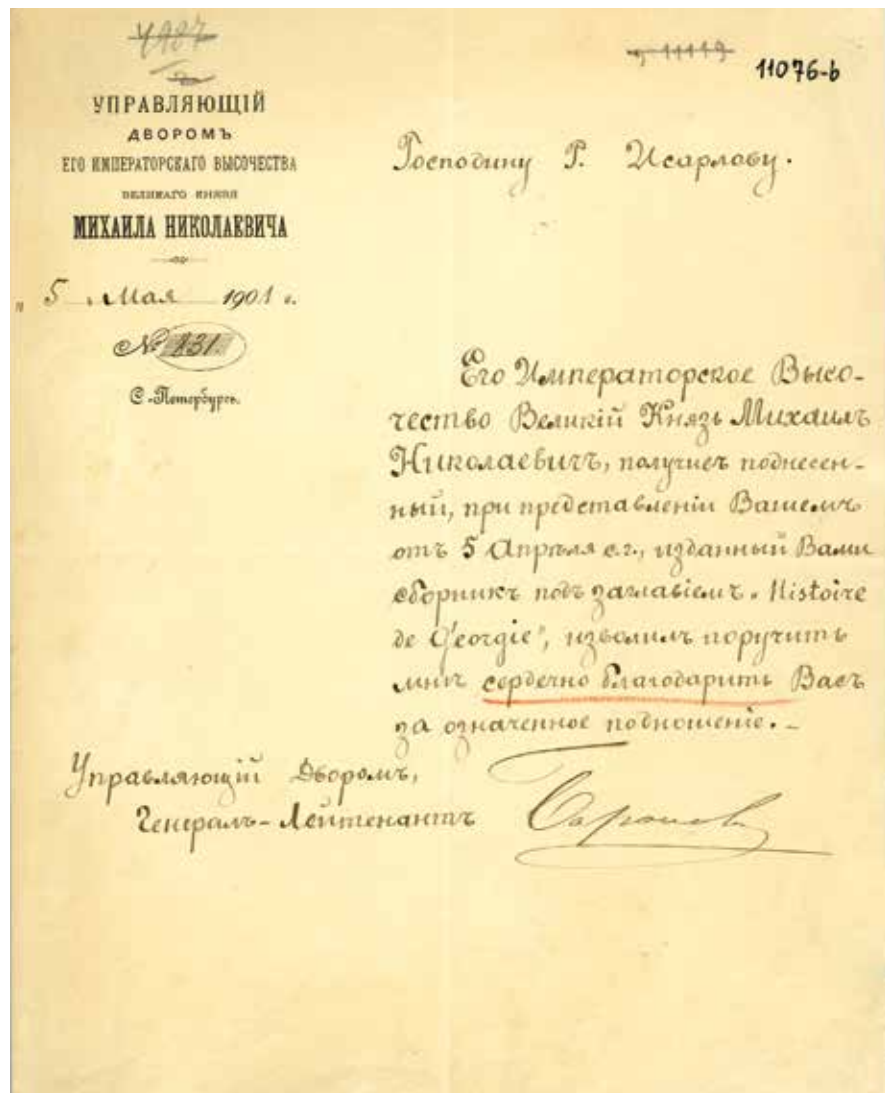 4987
11119
11076-b
УПРАВЛЯЮЩІЙ
ДВОРОМЪ
ЕГО ИМПЕРАТОРСКАГО ВЫСОЧЕСТВА
ВЕЛИКАГО КНЯЗЯ
МИХАИЛА НИКОЛАЕВИЧА
„ 5 „ Мая 1901 г.
№ 831.
С.-Петербургъ.
Господину Г. Исарлову.
Его Императорское Высо-
чество Великій Князь Михаилъ
Николаевичъ, получивъ поднесен-
ный, при представленіи Вашемъ
отъ 5 Апрѣля с.г., изданный Вами
сборникъ подъ заглавіемъ „Histoire
de Géorgie", изволилъ поручить
мнѣ сердечно благодарить Васъ
за означенное подношеніе.-
Управляющій Дворомъ,
Генералъ-Лейтенантъ